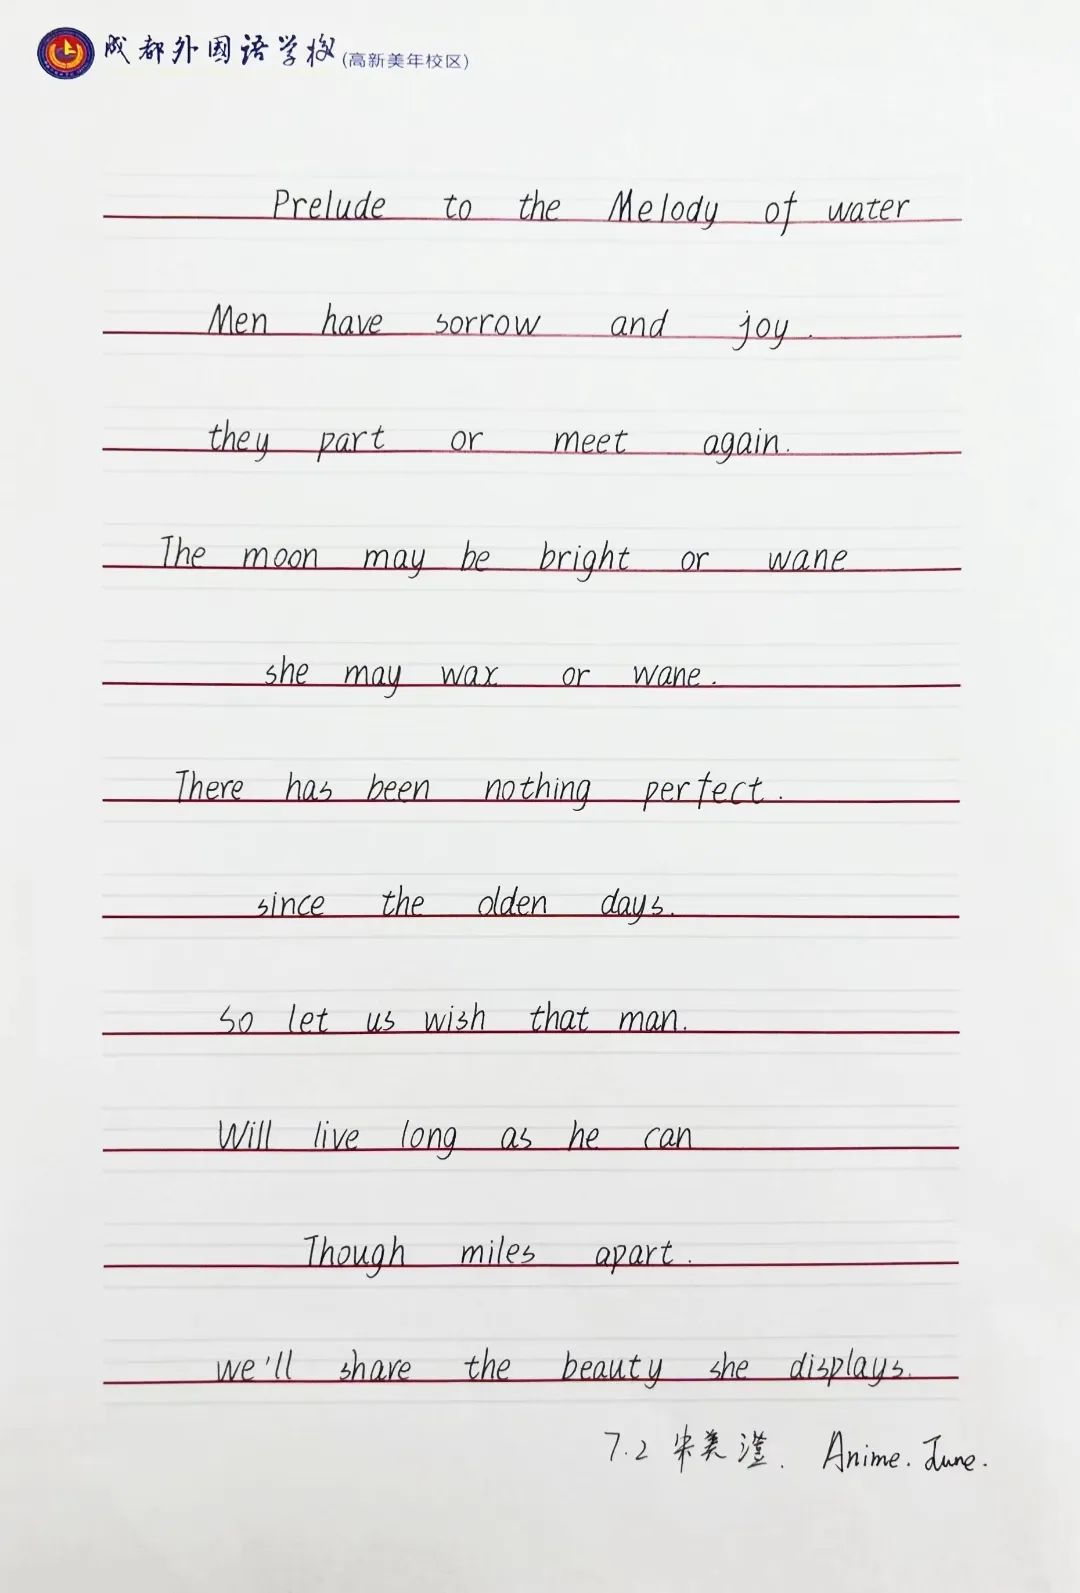 成都外国语学校(高新美年校区)
Prelude to the Melody of water
Men have sorrow and joy.
they part or meet again.
The moon may be bright or wane
she may wax or wane.
There has been nothing perfect.
since the olden days.
So let us wish that man.
Will live long as he can
Though miles apart.
we'll share the beauty she displays.
7.2 朱美滢. Anime. June.